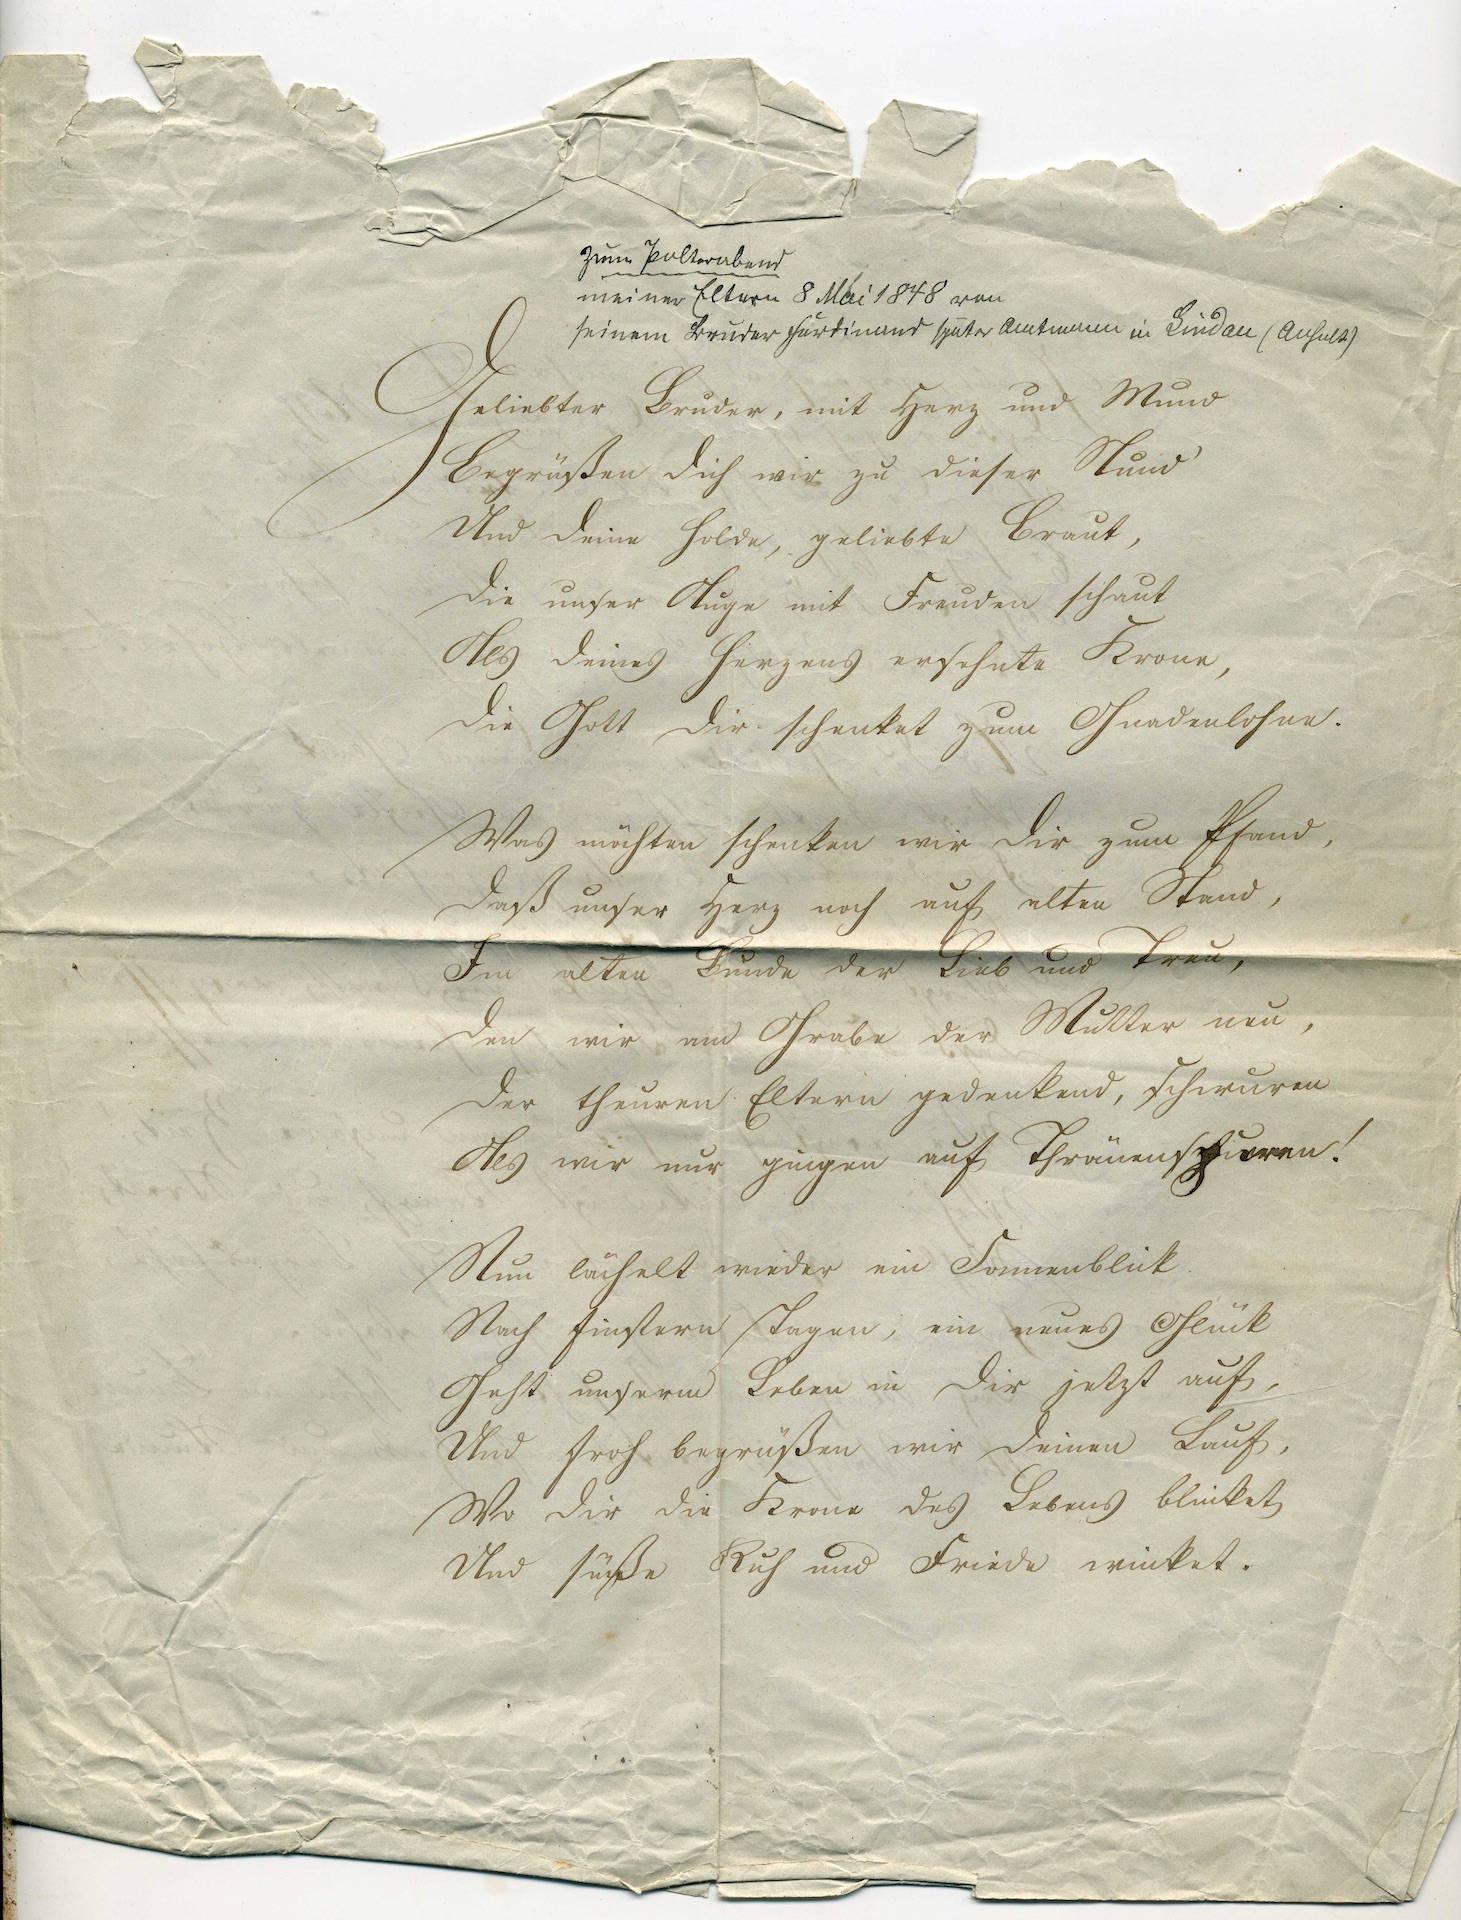 Zum Polterabend
meiner Eltern 8 Mai 1848 von
seinem Bruder Ferdinand später Amtmann in Lindau (Anhalt)
Geliebter Bruder, mit Herz und Mund
Begrüßen dich wir zu dieser Stund'
Und deine holde, geliebte Braut,
Die unser Auge mit Freuden schaut
Als deines Herzens ersehnte Krone,
Die Gott dir schenket zum Gnadenlohne.
Was möchten schenken wir dir zum Pfand,
Daß unser Herz noch auf alten Stand,
Im alten Bunde der Lieb und Treu,
Den wir am Grabe der Mutter neu,
Der theuren Eltern gedenkend, schwuren
Als wir nur gingen auf Thränenspuren!
Nun lächelt wieder ein Sonnenblick
Nach finstern Tagen, ein neues Glück
Geht unserm Leben in dir jetzt auf,
Und froh begrüßen wir deinen Lauf,
Wo dir die Krone des Lebens blinket
Und süße Ruh und Friede winket.